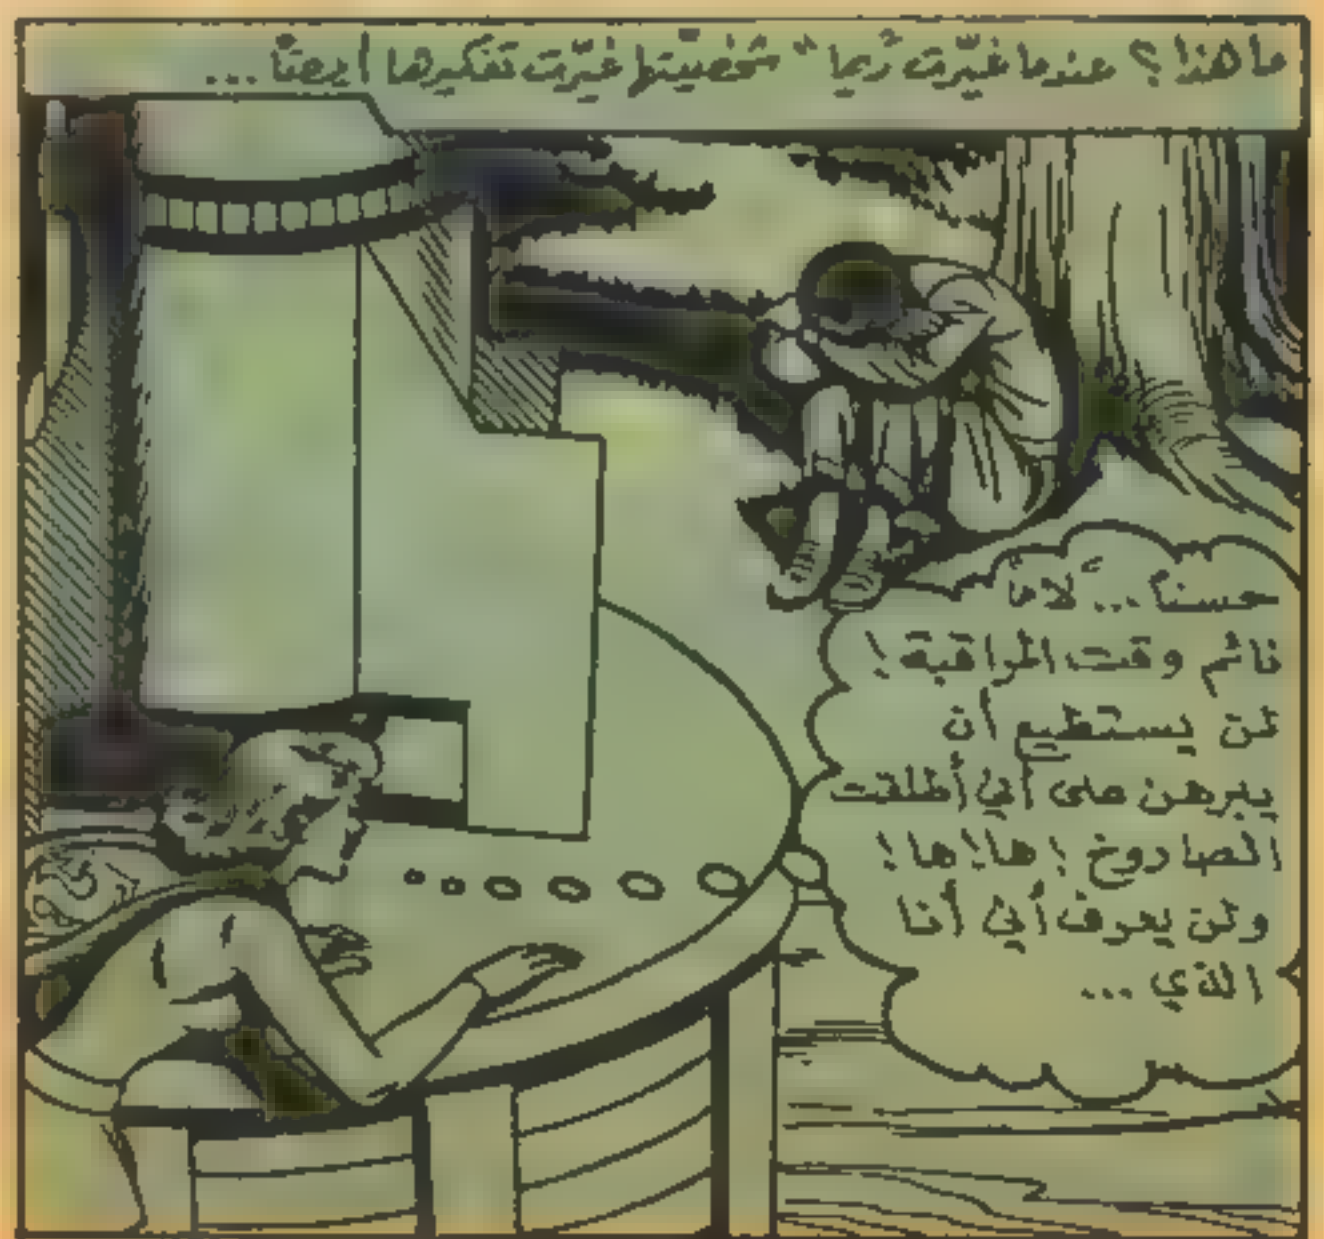 ما هذا؟ عندما غيّرت ريما "شخصيّتها غيّرت تفكيرها أيضاً ...
حسناً ... لاما
نائم وقت المراقبة!
لن يستطيع أن
يبرهن على أني أطلقت
الصاروخ! ها!ها!
ولن يعرف أني أنا
الذي ...